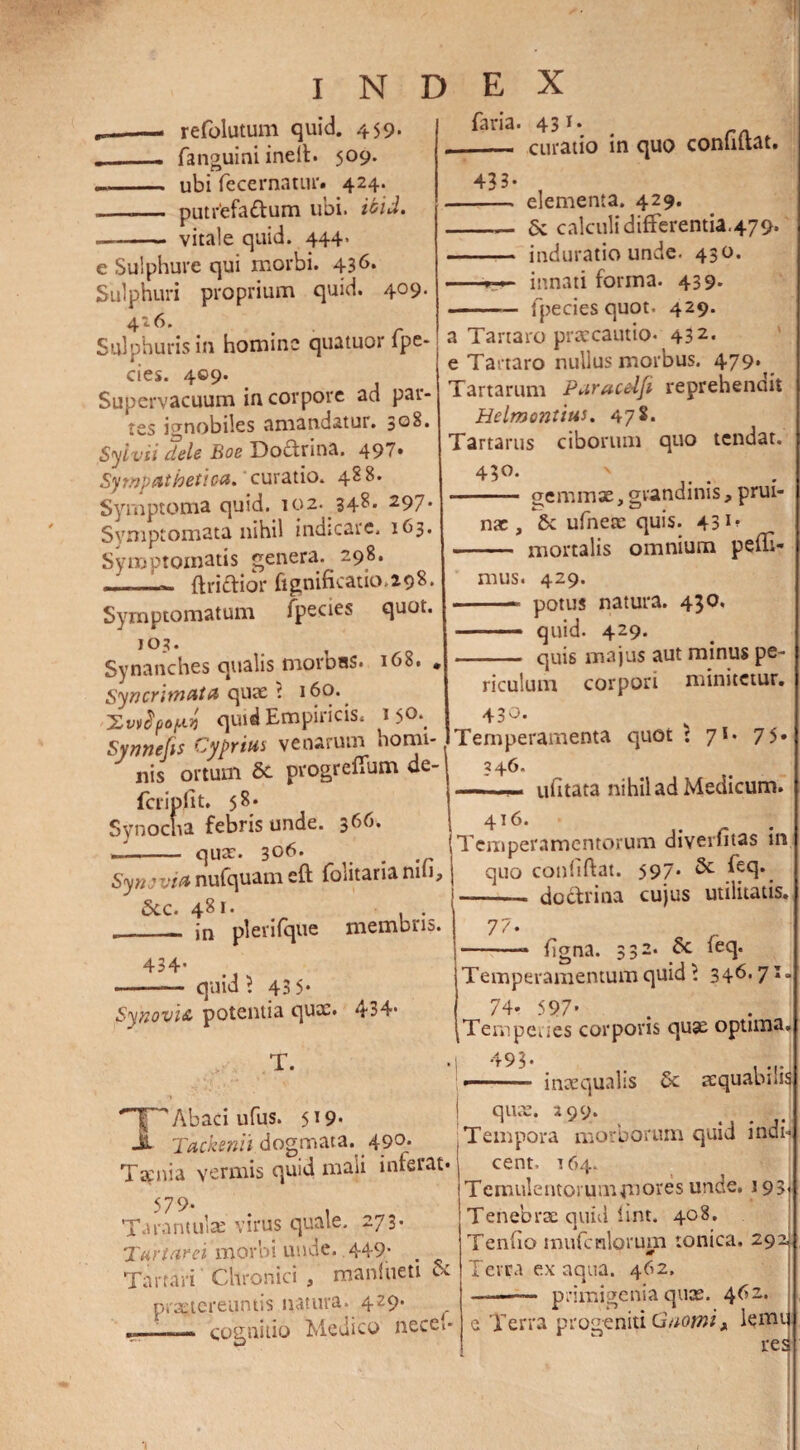 INDEX
——— reſolutum quid. 459.
——— ſanguini ineſt. 509.
——— ubi ſecernatur. 424.
——— putrefactum ubi. ibid.
——— vitale quid. 444.
e Sulphure qui morbi. 436.
Sulphuri proprium quid. 409.
426.
Sulphuris in homine quatuor ſpe-
cies. 409.
Supervacuum in corpore ad par-
tes ignobiles amandatur. 308.
Sylvii dele Boe Doctrina. 497.
Sympathetica. curatio. 488.
Symptoma quid. 102. 348. 297.
Symptomata nihil indicare. 163.
Symptomatis genera. 298.
——— ſtrictior ſignificatio. 298.
Symptomatum ſpecies quot.
103.
Synanches qualis morbus. 168.
Syncrimata quæ ? 160.
Συνδρομὴ quid Empiricis. 150.
Synneſis Cyprius venarum homi-
nis ortum & progreſſum de-
ſcripſit. 58.
Synocha febris unde. 366.
——— quæ. 306.
Synovia nuſquam eſt ſolitaria niſi,
&c. 481.
——— in pleriſque membris.
434.
——— quid ? 435.
Synoviæ potentia quæ. 434.
T.
TAbaci uſus. 519.
Tackenii dogmata. 490.
Tænia vermis quid mali inferat.
579.
Tarantulæ virus quale. 273.
Tartarei morbi unde. 449.
Tartari Chronici, manſueti &
prætereuntis natura. 429.
——— cognitio Medico neceſ-
ſaria. 431.
——— curatio in quo conſiſtat.
433.
——— elementa. 429.
——— & calculi differentia. 479.
——— induratio unde. 430.
——— innati forma. 439.
——— ſpecies quot. 429.
a Tartaro præcautio. 432.
e Tartaro nullus morbus. 479.
Tartarum Paracelſi reprehendit
Helmontius. 478.
Tartarus ciborum quo tendat.
430.
——— gemmæ, grandinis, prui-
næ, & uſneæ quis. 431.
——— mortalis omnium peſſi-
mus. 429.
——— potus natura. 430.
——— quid. 429.
——— quis majus aut minus pe-
riculum corpori minitetur.
430.
Temperamenta quot : 71. 75.
346.
——— uſitata nihil ad Medicum.
416.
Temperamentorum diverſitas in
quo conſiſtat. 597. & ſeq.
——— doctrina cujus utilitatis.
77.
——— ſigna. 332. & ſeq.
Temperamentum quid ? 346. 71.
74. 597.
Temperies corporis quæ optima.
493.
——— inæqualis & æquabilis
quæ. 299.
Tempora morborum quid indi-
cent. 164.
Temulentorum mores unde. 193.
Tenebræ quid ſint. 408.
Tenſio muſculorum tonica. 292.
Terra ex aqua. 462.
——— primigenia quæ. 462.
e Terra progeniti Gnomi, lemu
res